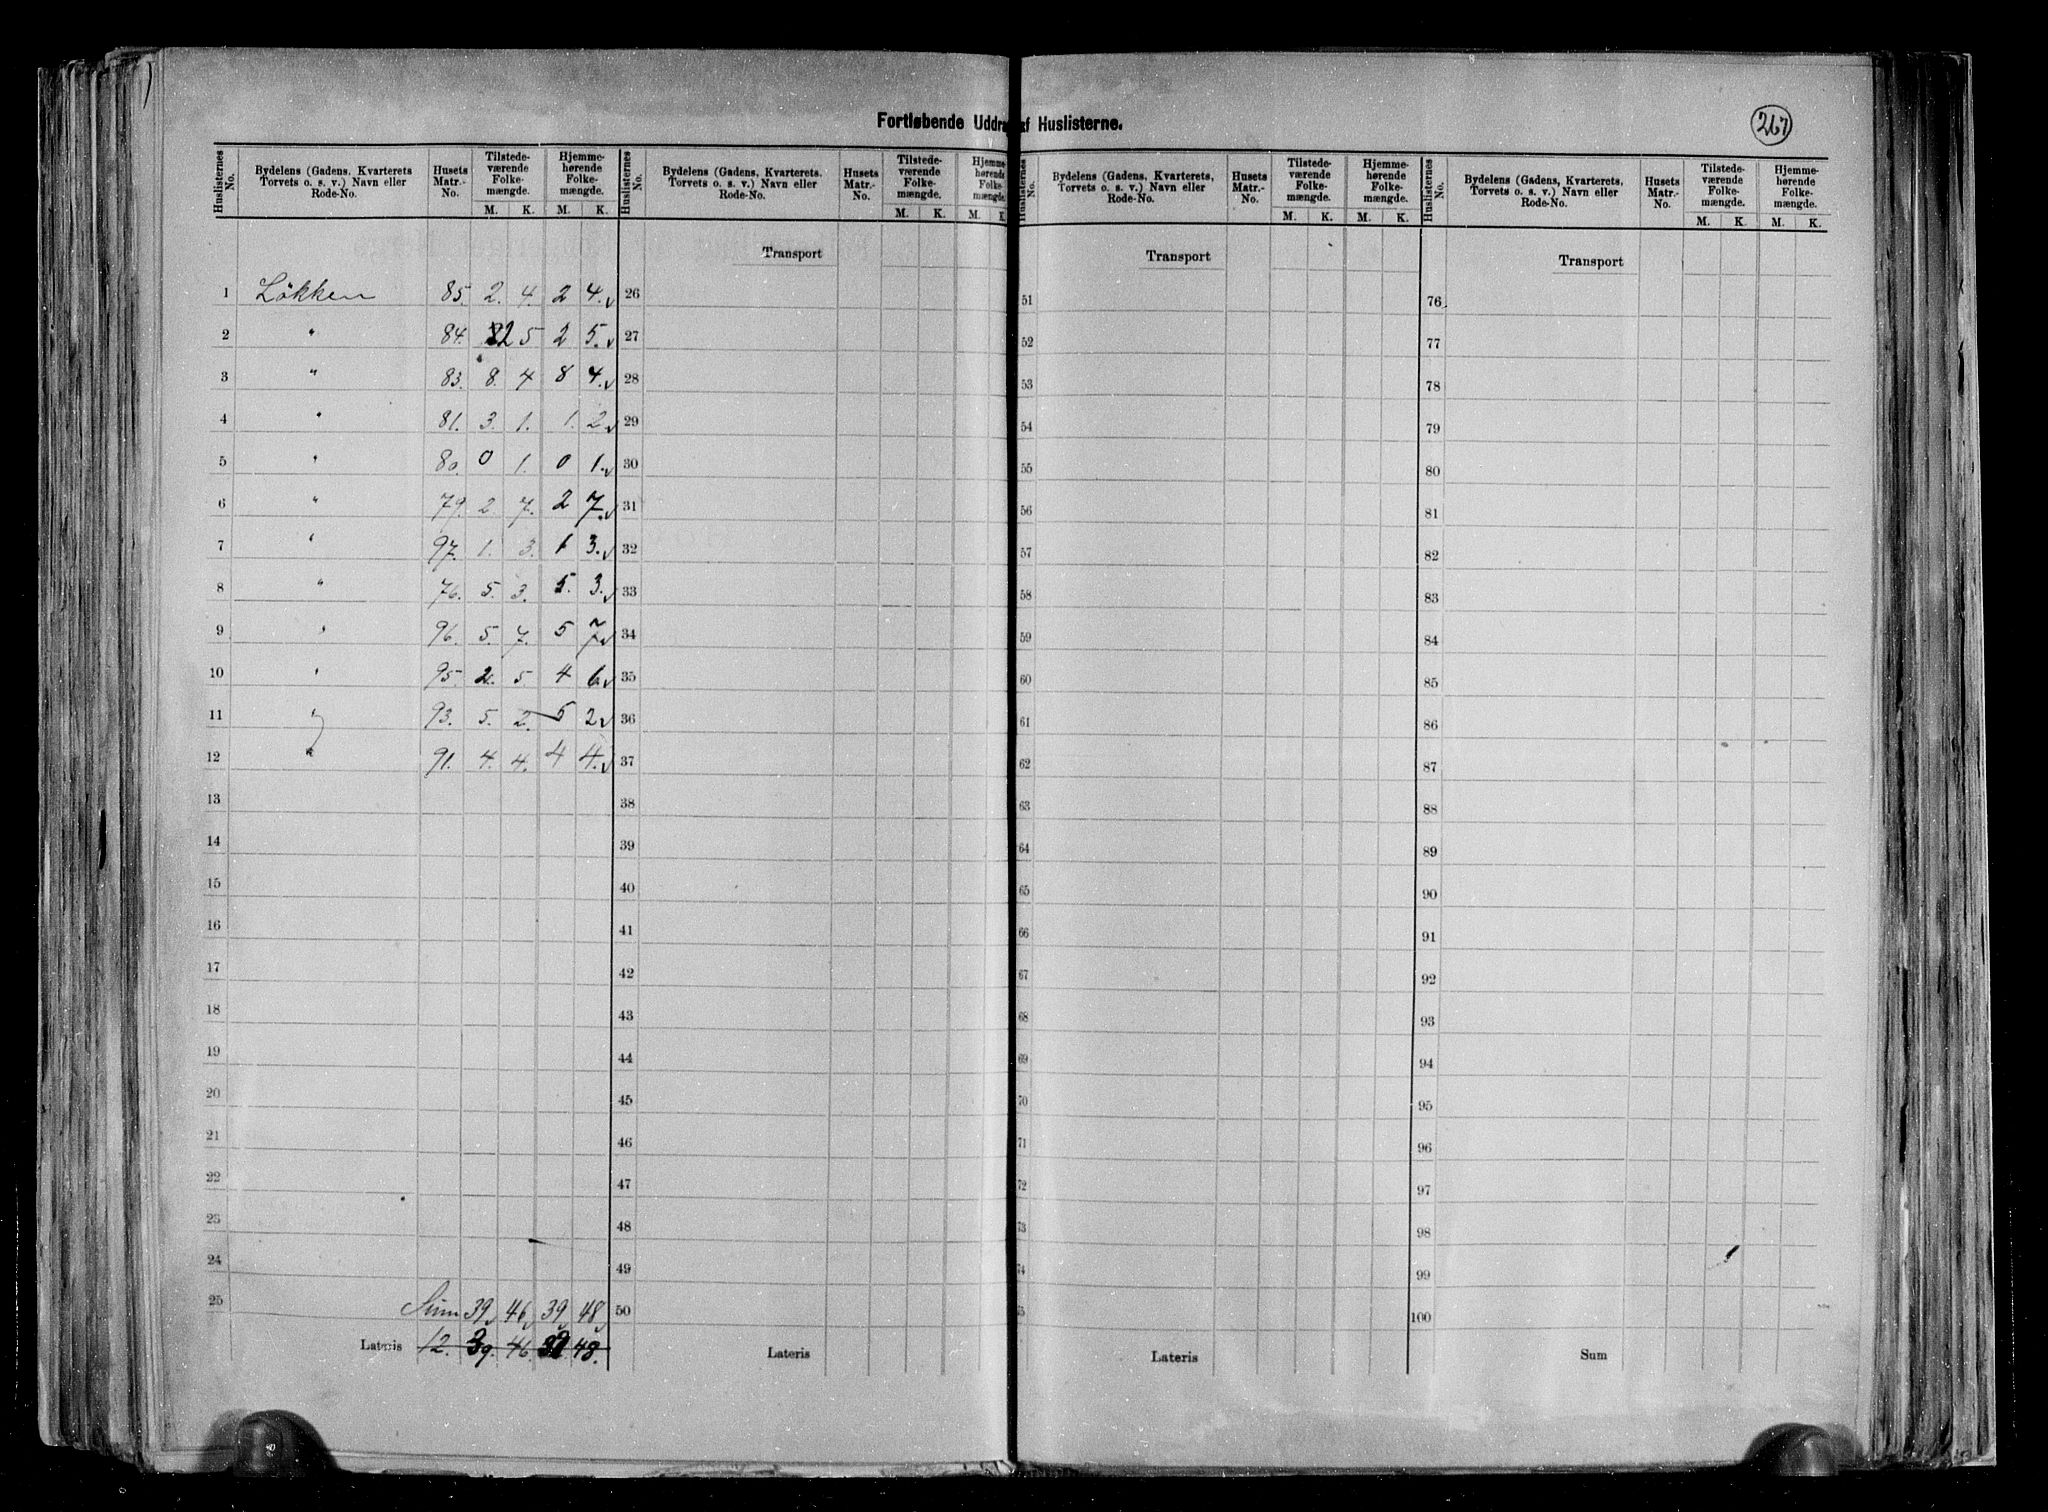 Fortløbende Uddrag af Huslisterne.
267
Huslisternes No.
Bydelens (Gadens, Kvarterets, Torvets o. s. v.) Navn eller Rode-No.
Husets Matr.-No.
Tilstede-værende Folke-mængde.
Hjemme-hørende Folke-mængde.
M. K. M. K.
Huslisternes No.
Bydelens (Gadens, Kvarterets, Torvets o. s. v.) Navn eller Rode-No.
Husets Matr.-No.
Tilstede-værende Folke-mængde.
Hjemme-hørende Folke-mængde.
M. K. M. K.
Huslisternes No.
Bydelens (Gadens, Kvarterets, Torvets o. s. v.) Navn eller Rode-No.
Husets Matr.-No.
Tilstede-værende Folke-mængde.
Hjemme-hørende Folke-mængde.
M. K. M. K.
Huslisternes No.
Bydelens (Gadens, Kvarterets, Torvets o. s. v.) Navn eller Rode-No.
Husets Matr.-No.
Tilstede-værende Folke-mængde.
Hjemme-hørende Folke-mængde.
M. K. M. K.
Transport Transport Transport
1 Løkken 85. 2. 4. 2 4. 26 51 76
2 " 84. 2 5 2 5. 27 52 77
3 " 83. 8. 4 8 4. 28 53 78
4 " 81. 3. 1. 1. 2 29 54 79
5 " 80. 0 1. 0 1. 30 55 80
6 " 79. 2. 7. 2 7. 31 56 81
7 " 97. 1. 3. 1 3. 32 57 82
8 " 76. 5. 3. 5. 3. 33 58 83
9 " 96. 5. 7. 5 7. 34 59 84
10 " 95. 2. 5. 4 6. 35 60 85
11 " 93. 5. 2. 5 2 36 61 86
12 " 91. 4. 4. 4 4. 37 62 87
13 38 63 88
14 39 64 89
15 40 65 90
16 41 66 91
17 42 67 92
18 43 68 93
19 44 69 94
20 45 70 95
21 46 71 96
22 47 72 97
23 48 73 98
24 49 74 99
25 Sum 39 46 39 48 50 75 100
Lateris 12. 39. 46. 48. Lateris Lateris Sum